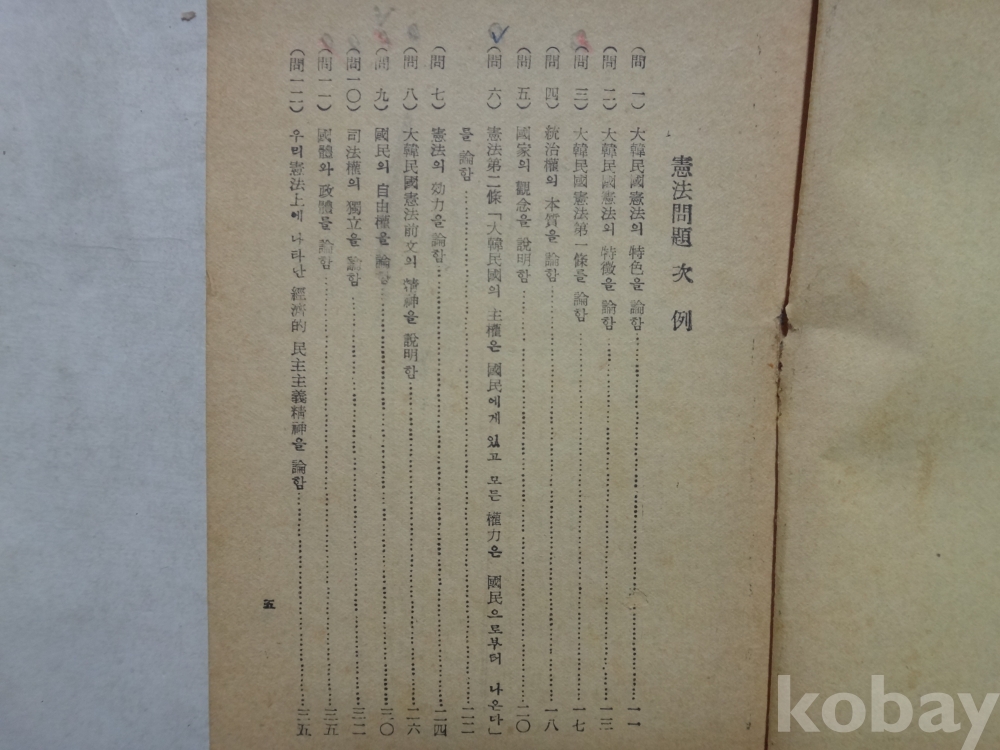 憲法問題 次例
(問 一) 大韓民國憲法의 特色을 論함 一一
(問 二) 大韓民國憲法의 特徵을 論함 一三
(問 三) 大韓民國憲法第一條를 論함 一七
(問 四) 統治權의 本質을 論함 一八
(問 五) 國家의 觀念을 說明함 二〇
(問 六) 憲法第二條「大韓民國의 主權은 國民에게 있고 모든 權力은 國民으로부터 나온다」
를 論함 二二
(問 七) 憲法의 効力을 論함 二四
(問 八) 大韓民國憲法前文의 精神을 說明함 二六
(問 九) 國民의 自由權을 論함 三〇
(問一〇) 司法權의 獨立을 論함 三二
(問一一) 國體와 政體를 論함 三五
(問一二) 우리憲法上에 나타난 經濟的 民主主義精神을 論함 三五
五
kobay